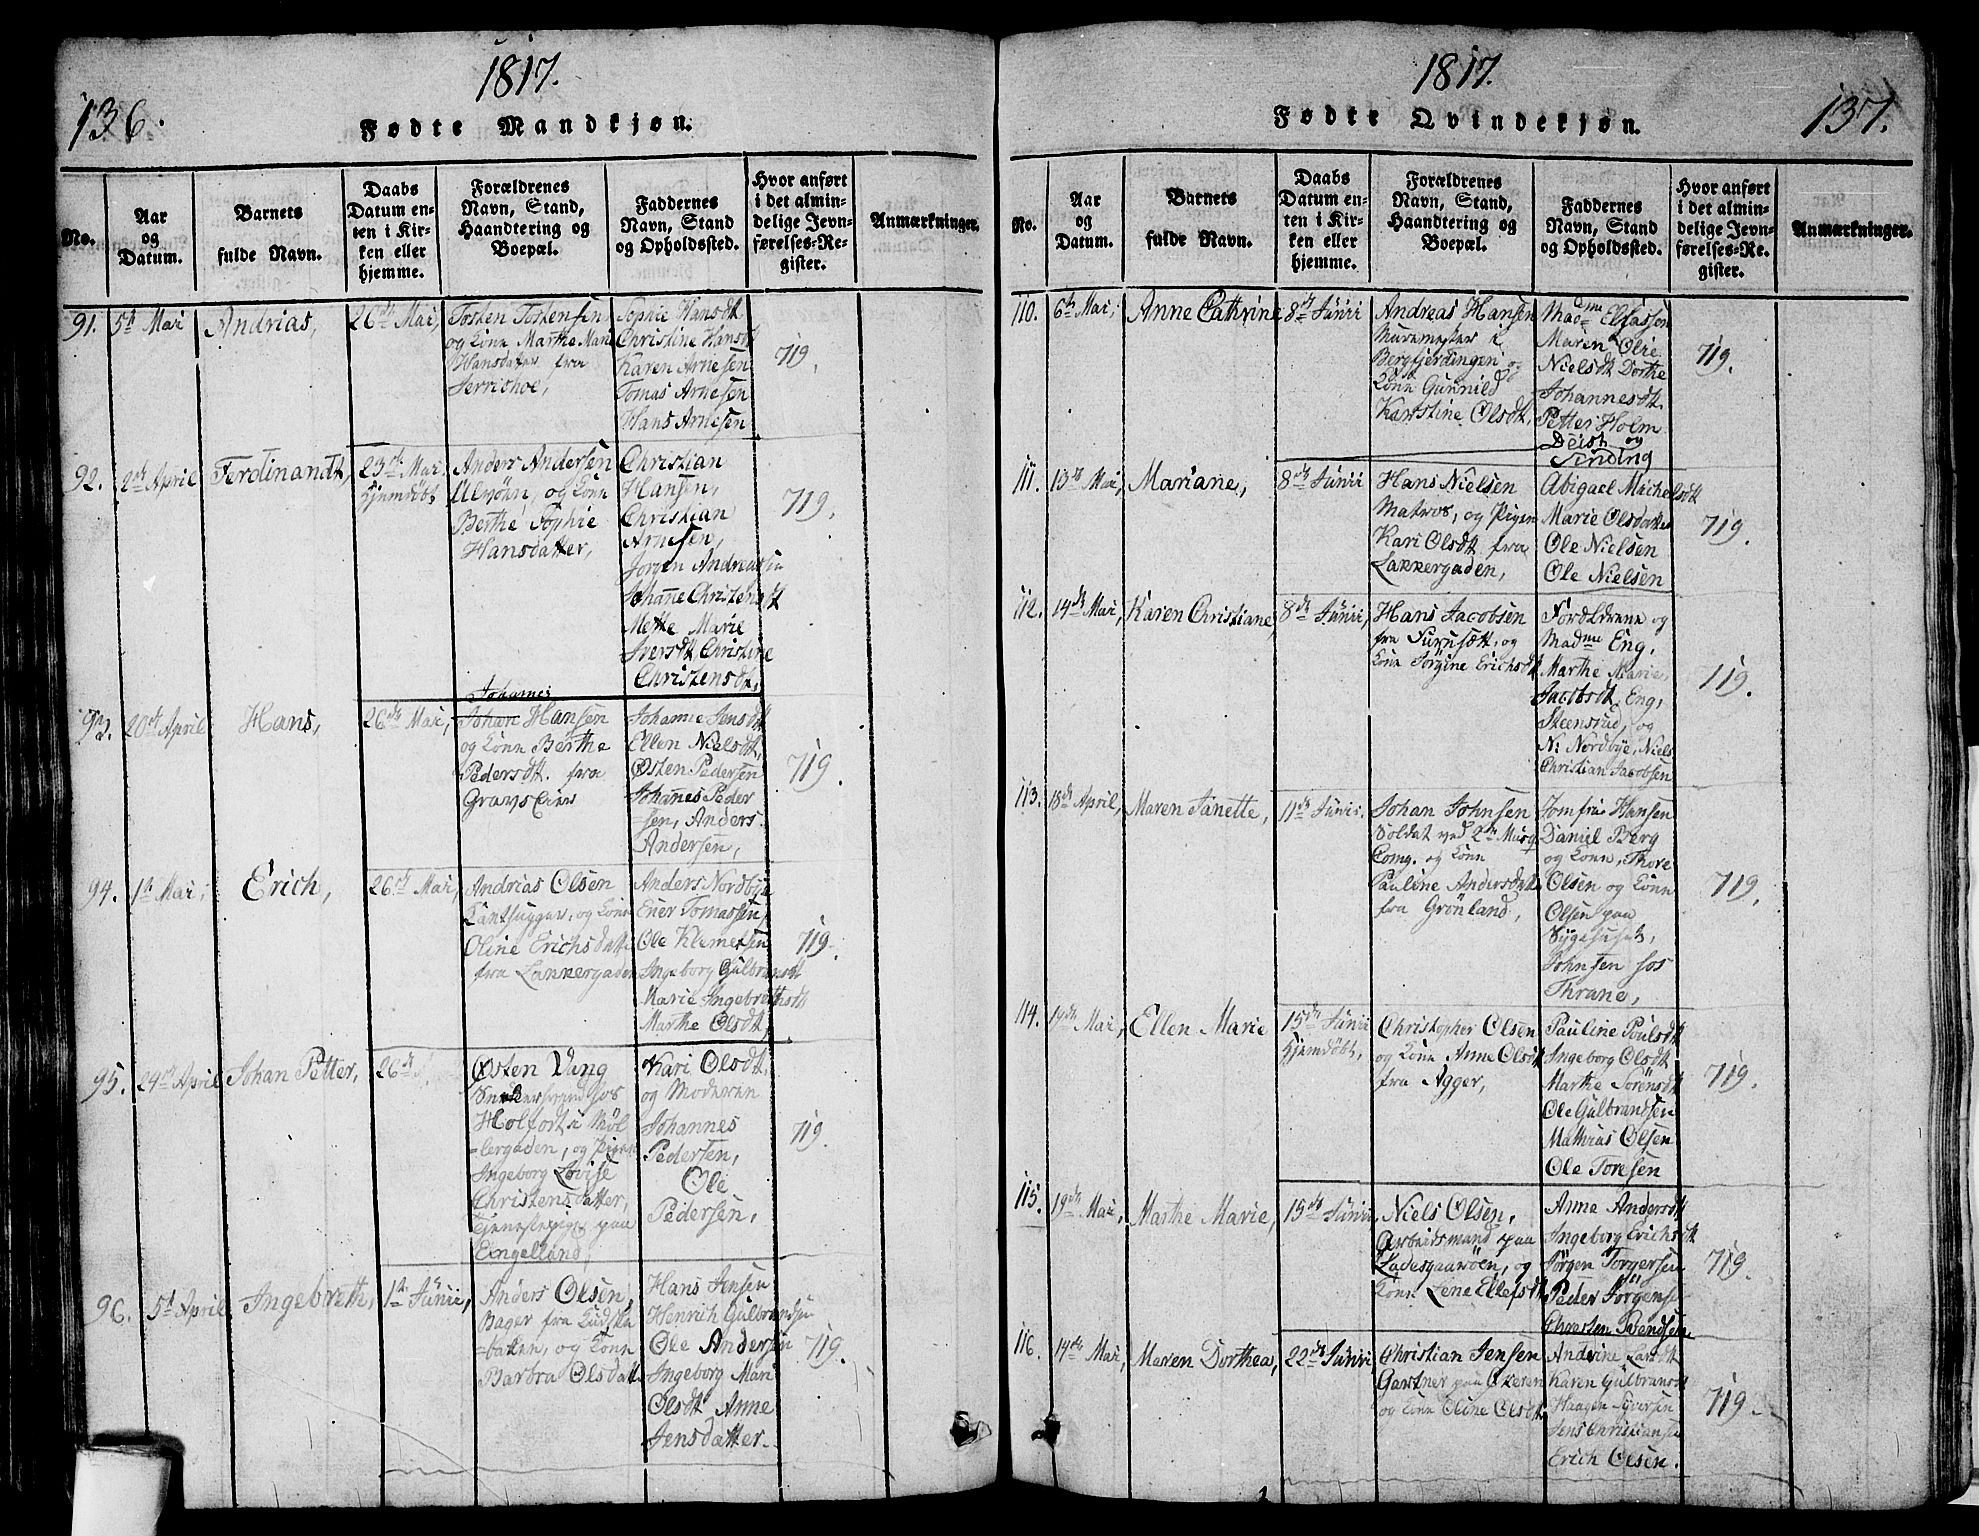 136.
1817.
Fødte Mandkjøn.
No.
Aar
og
Datum.
Barnets
fulde Navn.
Daabs
Datum en-
ten i Kir-
ken eller
hjemme.
Forældrenes
Navn, Stand,
Haandtering og
Boepæl.
Faddernes
Navn, Stand
og Opholdssted.
Hvor anført
i det almin-
delige Jevn-
førelses-Re-
gister.
Anmærkninger.
91.
5te Mai
Andrias,
26de Mai,
Tosten Tostensen
og Kone Marthe Mari
Hansdater fra
Sophie Hansdt
Christine Hansdt
Karen Arnesen
Tomas Arnesen
Hans Arnesen
719.
92.
2den April
Ferdinandt,
23de Mai
Hjemdöbt
Anders Andersen
og Kone
Berthe Sophie
Hansdatter,
Christian
Hansen,
Christian
Arnesen,
Jorgen Andreasen
Johanne Christensdt
Mette Marie
Iversdt, Christine
Christensdt,
719.
93.
20de April
Hans,
26de Mai,
Johannes
Johan Hansen
og Kone Berthe
Pedersdt. fra
Johanne Jensdt
Ellen Nielsdt,
Østen Pedersen
Johannes Peder
=sen, Anders
Andersen,
719.
94.
1te Mai,
Erich,
26de Mai,
Andrias Olsen
og Kone
Oline Erichsdatter
fra Lakkergaden
Anders Nordbye
Ener Tomassen,
Ole Klemetsen
Ingeborg Gulbransdt
Marie Ingebrethsdt
Marthe Olsdt,
719.
95.
24de April
Johan Petter,
26de
Østen Vang
Snekkersvend hos
Holfort i Möl
=lergaden, og Pigen
Ingeborg Lovise
Christensdatter,
tjenestepige paa
Eingelland,
Kari Olsdt,
og Moderen
Johannes
Pedersen,
Ole
Pedersen,
719.
96.
5te April
Ingebreth,
1te Junii,
Anders Olsen,
Bager fra
=bakken, og Kone
Barbra Olsdatt
Hans Jensen
Henrich Gulbrandsen
Ole Andersen
Ingeborg Mari
Olsdt Anne
Jensdatter.
719.
1817.
137.
Fødte Qvindekjøn.
No.
Aar
og
Datum.
Barnets
fulde Navn.
Daabs
Datum en-
ten i Kir-
ken eller
hjemme.
Forældrenes
Navn, Stand,
Haandtering og
Boepæl.
Faddernes
Navn, Stand
og Opholdssted.
Hvor anført
i det almin-
delige Jevn-
førelses-Re-
gister.
Anmærkninger.
110.
6te Mai,
Anne Cathrine
8de Junii
Andreas Hansen
Muremester i
Bergfjerdingen og
Kone Gunnild
Karstine Olsdt,
Madme Eliassen
Maren Olie
Nielsdt Dorthe
Johannesdt.
Petter Holm
og
Sinding
719.
111.
13de Mai,
Mariane,
8de Junii
Hans Nielsen
Matros, og Pigen
Kari Olsdt fra
Lakkergaden,
Abigael Michelsdt
Marie Olsdatter
Ole Nielsen
Ole Nielsen
719.
112.
14de Mai,
Karen Christiane,
8de Junii,
Hans Jacobsen
fra Furusætt, og
Kone Jörgine Erichsdt
Forældrene og
Madme Eng,
Marthe Marie
Jacobsdt, Eng,
Steensrud, og
N: Nordbye, Niels
Christian Jacobsen
119.
113.
18de April,
Maren Janette,
11de Junii,
Johan Johnsen
Soldat ved 2den Musq
Comp. og Kone
Pauline Andersdatt
fra Grönland,
Jomfru Hansen
Daniel Berg
og Kone, Thore
Olsen og Kone
Olsen paa
Sygehuset,
Johnsen hos
Thrane,
719.
114.
Mai,
Ellen Marie
15de Junii
Hjemdöbt,
Christopher Olsen
og Kone Anne Olsdt
fra Agger,
Pauline Poulsdt
Ingeborg Olsdt
Marthe Sörensdt
Ole Gulbrandsen
Mathias Olsen
Ole Toresen
719.
115.
19de Mai,
Marthe Marie,
15de Junii
Niels Olsen,
Arbeidsmand paa
Ladegaardsöen, og
Kone Lene Ellefsdt
Anne Andersdt
Ingeborg Erichsdt
Jörgen Torgersen
Peder Jörgense
Chresten Svendsen
719.
116.
14de Mai,
Maren Dorthea,
22de Junii
Christian Jensen
Gartner paa Ekeren
og Kone Oline Olsdt
Andrine Larsdt
Karen Gulbransdt
Haagen Syversen
Jens Christianse
Erich Olsen.
719.